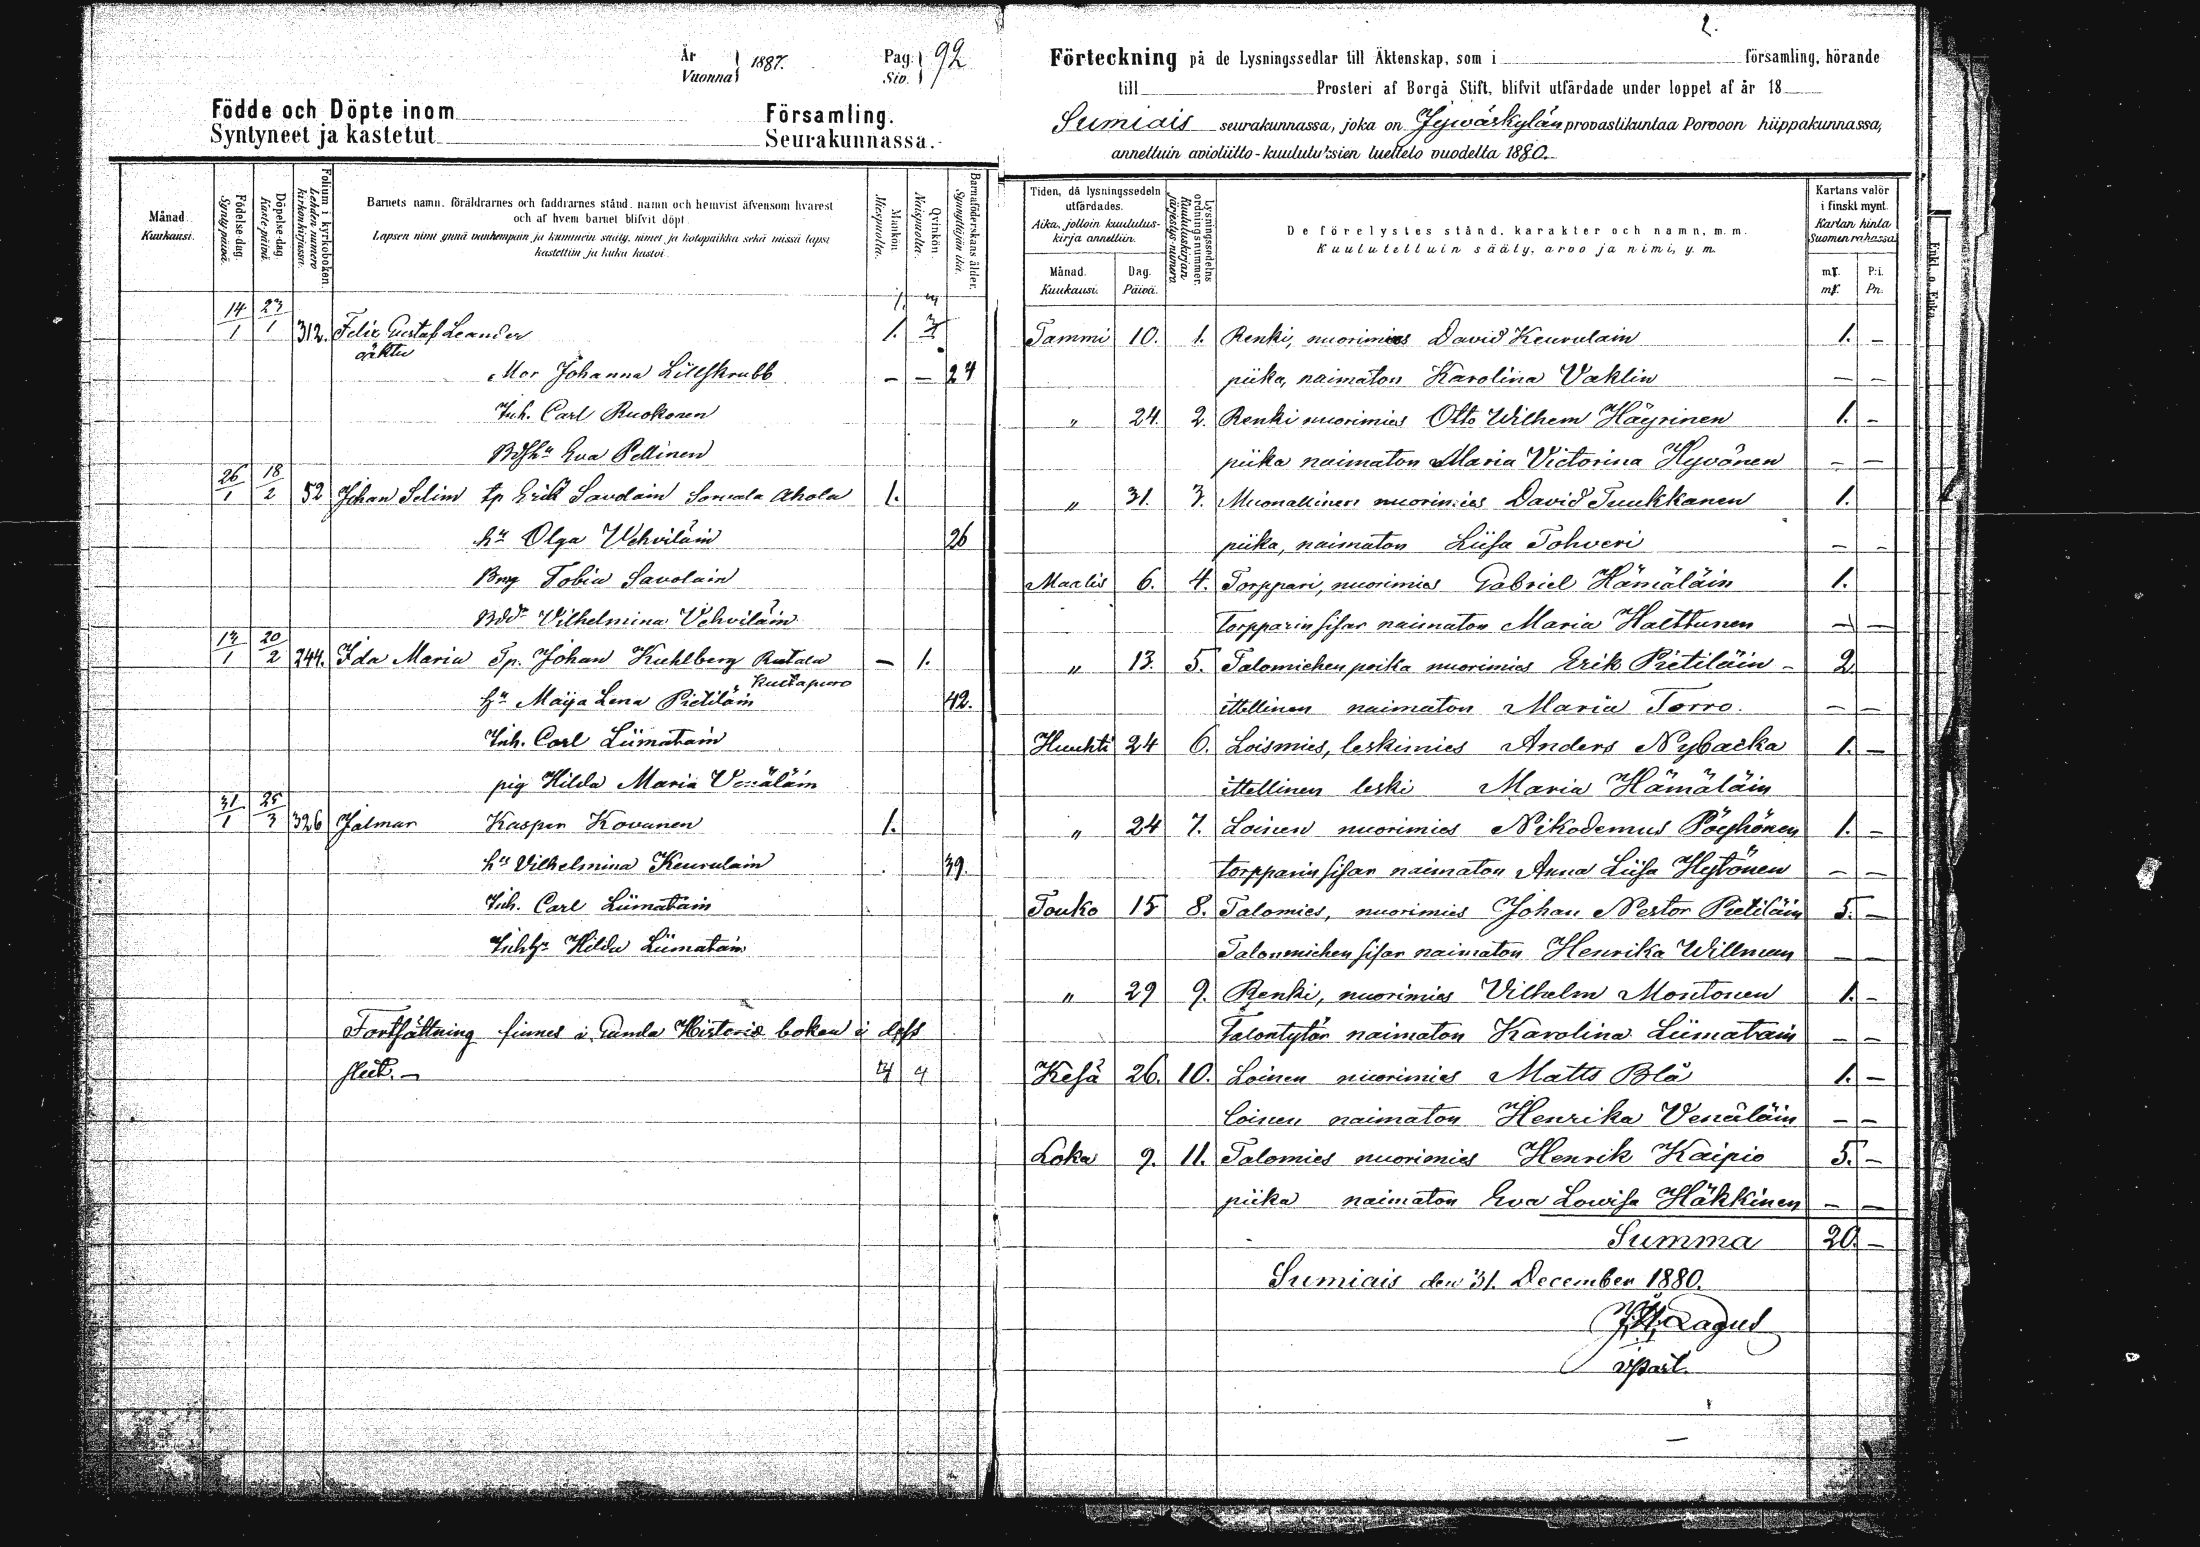 År
Vuonna 1887.
Pag. 92
Siv.
Födde och Döpte inom Församling.
Syntyneet ja kastetut Seurakunnassa.
Månad. Kuukausi.
Födelse-dag. Synty-päivä.
Döpelse-dag. Kaste-päivä.
Folium i kyrkoboken. Lehden numero kirkonkirjassa.
Barnets namn, föräldrarnes och faddrarnes stånd, namn och hemvist äfvensom hvarest
och af hvem barnet blifvit döpt.
Lapsen nimi ynnä vanhempain ja kummein sääty, nimet ja kotopaikka sekä missä lapsi
kastettiin ja kuka kastoi.
Mankön. Miespuolta.
Qvinkön. Naispuolta.
Barnaföderskans ålder. Synnyttäjän ikä.
14/1 23/1 312. Felix Gustaf Leander 1.
oäkta
Mor Johanna Lillskrubb — — 24
Inh. Carl Ruokonen
Eva Pellinen
26/1 18/2 52 Johan Selim tp Erik Savolain Sorvala Ahola 1.
hu Olga Vehviläin 26
Tobia Savolain
Vilhelmina Vehviläin
20/2 244. Ida Maria Tp. Johan Kuhlberg — 1.
hu Maija Lena Pietiläin 42.
Inh. Carl Liimatain
pig Hilda Maria Venäläin
31/1 25/3 326 Jalmar Kasper Kovanen 1.
hu Vilhelmina Keurulain 39.
Inh. Carl Liimatain
Hilda Liimatain
Fortsättning finnes i Gamla Historie boken i dess
slut. —
2.
Förteckning på de Lysningssedlar till Äktenskap, som i församling, hörande
till Prosteri af Borgå Stift, blifvit utfärdade under loppet af år 18
Sumiais seurakunnassa, joka on Jyväskylän provastikuntaa Porvoon hiippakunnassa,
annettuin avioliitto-kuulutuksien luettelo vuodelta 1880.
Tiden, då lysningssedeln utfärdades.
Aika, jolloin kuulutus-kirja annettiin.
Månad. Kuukausi.
Dag. Päivä.
Lysningssedelns ordningsnummer. Kuulutuskirjan järjestys-numero
De förelystes stånd, karakter och namn, m. m.
Kuulutettuin sääty, arvo ja nimi, y. m.
Kartans valör i finskt mynt.
Kartan hinta Suomen rahassa.
mk. P:i.
mk. Pn.
Tammi 10. 1. Renki, nuorimies David Keurulain 1. —
piika, naimaton Karolina Vaklin — —
" 24. 2. Renki nuorimies Otto Wilhem Häyrinen 1. —
piika naimaton Maria Victorina Hyvönen — —
" 31. 3. Muonallinen nuorimies David Tuukkanen 1.
piika, naimaton Liisa Tohveri — —
Maalis 6. 4. Torppari, nuorimies Gabriel Hämäläin 1.
Torpparin sisar naimaton Maria Halttunen — —
" 13. 5. Talomiehen poika nuorimies Erik Pietiläin — 2
ittellinen naimaton Maria Torro. — —
Huuhti 24 6. Loismies, leskimies Anders Nybacka 1. —
ittellinen leski Maria Hämäläin
" 24 7. Loinen nuorimies Nikodemus Pöyhönen 1. —
torpparin sisar naimaton Anna Liisa Hytönen — —
Touko 15 8. Talomies, nuorimies Johan Nestor Pietiläin 5. —
Talonmiehen sisar naimaton Henrika Willman — —
" 29 9. Renki, nuorimies Vilhelm Montonen 1. —
Talontytär naimaton Karolina Liimatain — —
Kesä 26. 10. Loinen nuorimies Matts Blå 1. —
loinen naimaton Henrika Venäläin — —
Loka 9. 11. Talomies nuorimies Henrik Kaipio 5. —
piika naimaton Eva Lowisa Häkkinen — —
Summa 20. —
Sumiais den 31. December 1880.
Lagus
vpast.